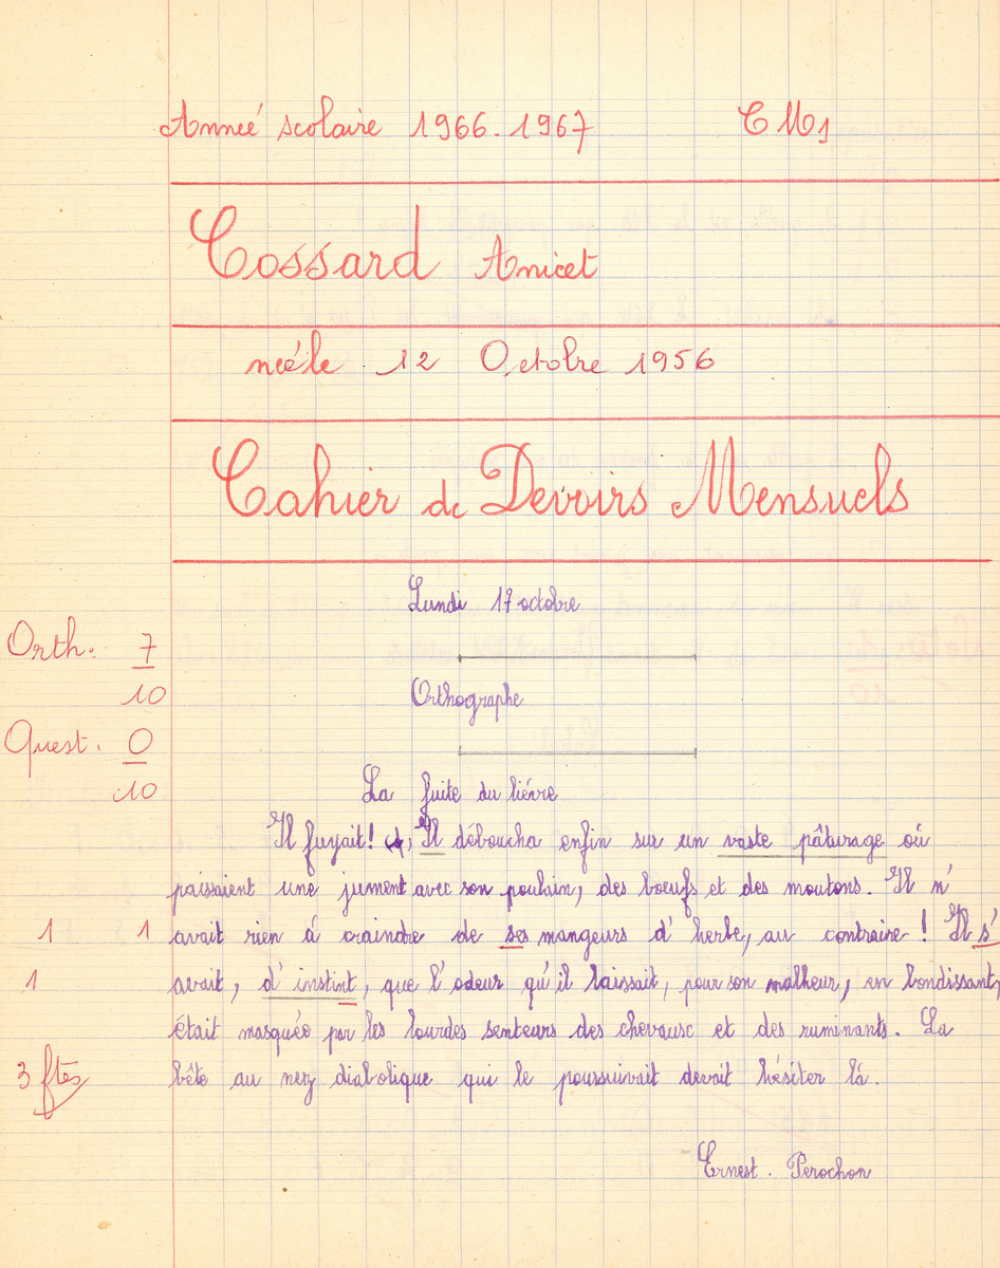 Anneé scolaire 1966-1967 CM1
Cossard Anicet
neé le 12 Octobre 1956
Cahier de Devoirs Mensuels
Lundi 17 octobre
Orth. 7
10
Orthographe
Quest. 0
10
La fuite du liévre
Il fuyait! Il déboucha enfin sur un vaste pâturage où
paissaient une jument avec son poulain, des bœufs et des moutons. Il n'
1 1 avait rien à craindre de ses mangeurs d'herbe, au contraire ! Il s'
1 avait, d'instint, que l'odeur qu'il laissait, pour son malheur, en bondissant,
était masquée par les lourdes senteurs des chevaux et des ruminants. La
3 ftes bête au nez diabolique qui le poursuivait devait hésiter là.
Ernest. Perochon